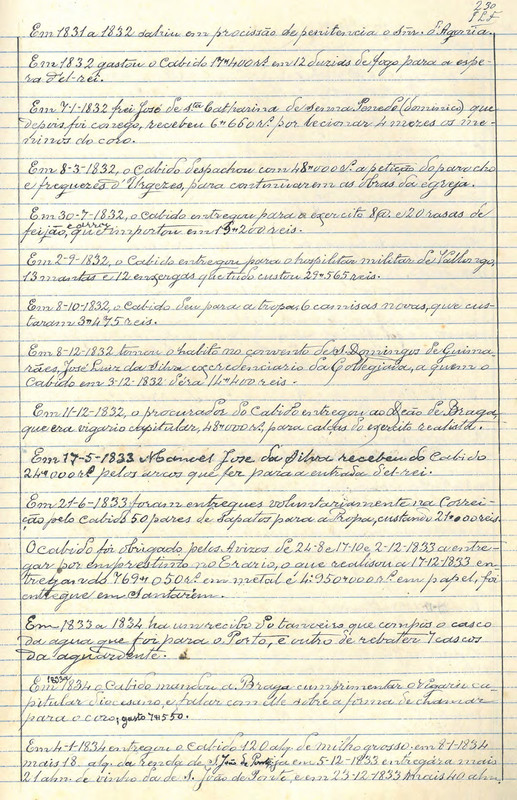 230
Em 1831 a 1832 sahiu em procissão de penitencia o Snr. d'Agonia.
Em 1832 gastou o Cabido 17#400 rs. em 12 duzias de fogo para a espe-
ra d'el-rei.
Em 7-1-1832 frei José de Sta Catharina de Senna Penedo (dominico) que
depois foi conego, recebeu 6#660 rs. por lecionar 4 mezes os me-
ninos do coro.
Em 8-3-1832, o Cabido despachou com 48#000 rs. a petição do parocho
e freguezes d'Urgezes, para continuarem as obras da egreja.
Em 30-7-1832, o cabido entregou para o exercito 8@. e 20 rasas de
feijão, e arroz que importou em 15#200 reis.
Em 2-9-1832, o Cabido entregou para o hospital militar de Vallongo,
13 mantas e 12 enxergas que tudo custou 29#565 reis.
Em 8-10-1832, o Cabido deu para a tropa, 6 camisas novas, que cus-
taram 3#475 reis.
Em 8-12-1832 tomou o habito no convento de S. Domingos de Guima-
rães, José Luiz da Silva excredenciario da Collegiada, a quem o
Cabido em 3-12-1832 déra 14#400 reis.
Em 11-12-1832, o procurador do Cabido entregou ao Deão de Braga,
que era vigario capitular, 48#000 rs, para calças do exercito realista.
Em 17-5-1833 Manoel José da Silva recebeu do Cabido
24#000 rs. pelos arcos que fez para a entrada d'el-rei.
Em 21-6-1833 foram entregues voluntariamente na Correi-
ção pelo Cabido 50 pares de sapatos para a tropa, custando 21#000 reis
O cabido foi obrigado, pelos Avizos de 24-8 e 17-10 e 2-12-1833 a entre-
gar por emprestimo no Erario, o que realisou a 17-12-1833 en-
tregando 769#050 rs. em metal e 4:950#000 rs. em papel, foi
entregue em Santarem.
Em 1833 a 1834 ha um recibo do tanoeiro que compos o casco
da agua que foi para o Porto, e outro de rebater 7 cascos
da aguardente.
Em 1834 o Cabido mandou a Braga cumprimentar o Vigario ca-
pitular diocesano, e falar com elle sobre a forma de chamar
para o coro, gasto 7#550.
Em 4-1-1834 entregou o Cabido 120 alq. de milho grosso, em 8-1-1834
mais 18 alq. da renda de S. João de Ponte, já em 5-12-1833 entregára mais
21 alm. de vinho da de S. João de Ponte, e em 23-12-1833 mais 40 alm.